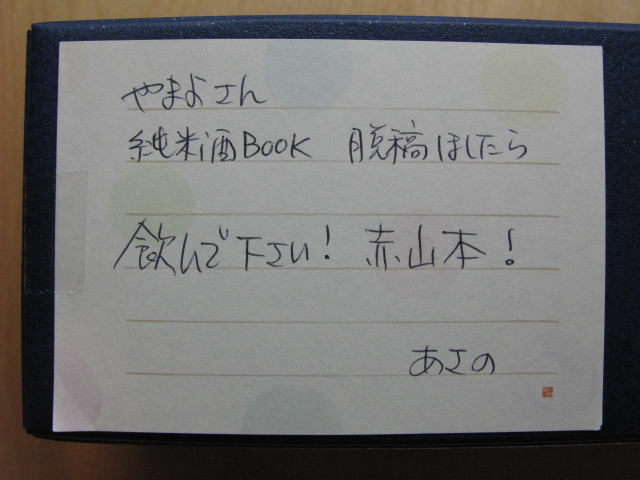 やまよさん
純米酒BOOK 脱稿ほしたら
飲んで下さい! 赤山本!
あさの